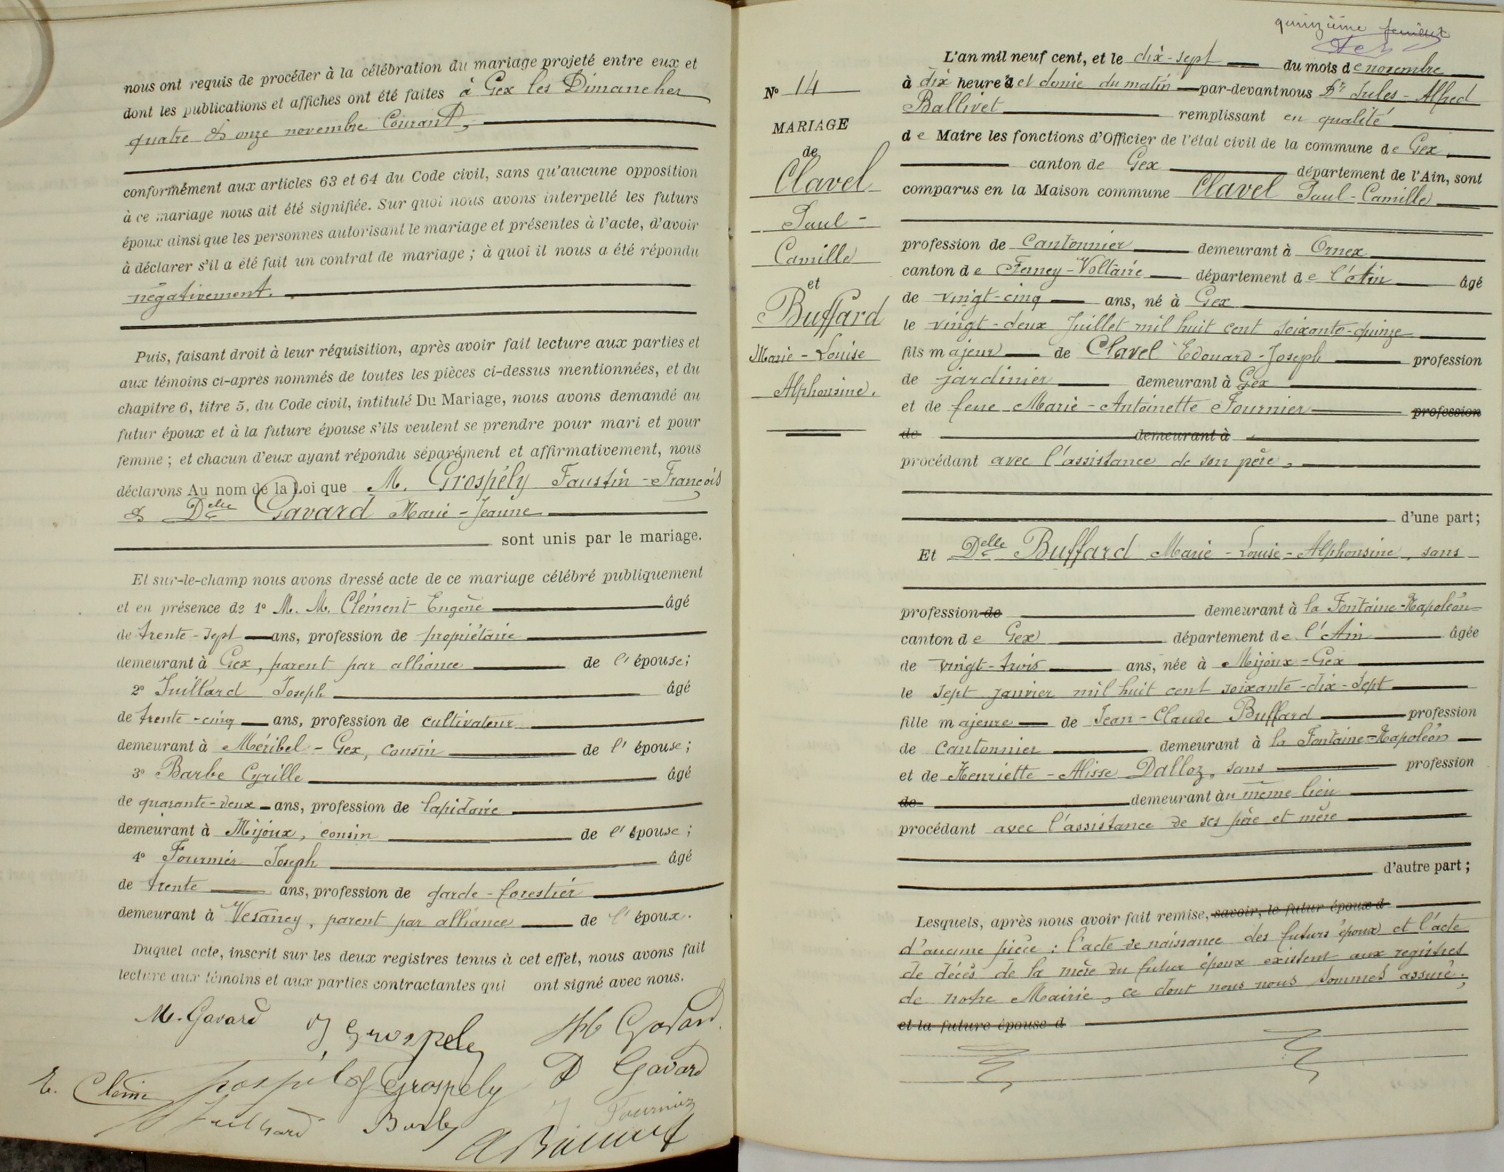 nous ont requis de procéder à la célébration du mariage projeté entre eux et
dont les publications et affiches ont été faites à Gex les Dimanches
quatre & onze novembre Courant,
conformément aux articles 63 et 64 du Code civil, sans qu'aucune opposition
à ce mariage nous ait été signifiée. Sur quoi nous avons interpellé les futurs
époux ainsi que les personnes autorisant le mariage et présentes à l'acte, d'avoir
à déclarer s'il a été fait un contrat de mariage ; à quoi il nous a été répondu
négativement.
Puis, faisant droit à leur réquisition, après avoir fait lecture aux parties et
aux témoins ci-après nommés de toutes les pièces ci-dessus mentionnées, et du
chapitre 6, titre 5, du Code civil, intitulé Du Mariage, nous avons demandé au
futur époux et à la future épouse s'ils veulent se prendre pour mari et pour
femme ; et chacun d'eux ayant répondu séparément et affirmativement, nous
déclarons Au nom de la Loi que M. Grospély Faustin-François
& Delle Gavard Marie-Jeanne
sont unis par le mariage.
Et sur-le-champ nous avons dressé acte de ce mariage célébré publiquement
et en présence de 1° M. M. Clément Eugène âgé
de trente-sept ans, profession de propiétaire
demeurant à Gex, parent par alliance de l'épouse;
2° Juillard Joseph âgé
de trente-cinq ans, profession de cultivateur
demeurant à Méribel-Gex, cousin de l'épouse;
3° Barbe Cyrille âgé
de quarante-deux ans, profession de lapidaire
demeurant à Mijoux, cousin de l'épouse;
4° Fournier Joseph âgé
de trente ans, profession de garde-forestier
demeurant à Vesancy, parent par alliance de l'époux.
Duquel acte, inscrit sur les deux registres tenus à cet effet, nous avons fait
lecture aux témoins et aux parties contractantes qui ont signé avec nous.
M. Gavard J Grospely Gavard
E. Clément Grospely D Gavard
Juillard Barbe J Fournier
quinzième feuillet
N° 14
MARIAGE
de
Clavel
Paul-
Camille
et
Buffard
Marie-Louise
Alphonsine.
L'an mil neuf cent, et le dix-sept du mois de novembre
à dix heures et demie du matin par-devant nous Dr Jules-Alfred
Ballivet remplissant en qualité
de Maire les fonctions d'Officier de l'état civil de la commune de Gex,
canton de Gex département de l'Ain, sont
comparus en la Maison commune Clavel Paul-Camille
profession de cantonnier demeurant à Ornex
canton de Ferney-Voltaire département de l'Ain âgé
de vingt-cinq ans, né à Gex
le vingt-deux Juillet mil huit cent soixante-quinze
fils majeur de Clavel Edouard-Joseph profession
de jardinier demeurant à Gex
et de feue Marie-Antoinette Fournier profession
de demeurant à
procédant avec l'assistance de son père,
d'une part;
Et Delle Buffard Marie-Louise-Alphonsine, sans
profession de demeurant à la Fontaine-Napoléon
canton de Gex département de l'Ain âgée
de vingt-trois ans, née à Mijoux-Gex
le sept janvier mil huit cent soixante-dix-sept
fille majeure de Jean-Claude Buffard profession
de cantonnier demeurant à la Fontaine-Napoléon
et de Henriette-Alisse Dalloz, sans profession
de demeurant au même lieu
procédant avec l'assistance de ses père et mère
d'autre part;
Lesquels, après nous avoir fait remise, savoir, le futur époux d
d'aucune pièce : l'acte de naissance des futurs époux et l'acte
de décès de la mère du futur époux existent aux registres
de notre Mairie, ce dont nous nous sommes assuré;
et la future épouse d